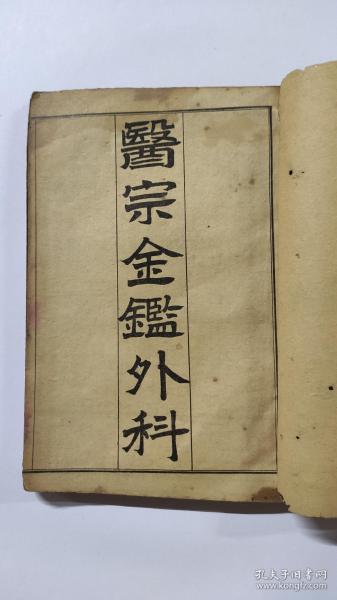 醫宗金鑑外科
孔夫子旧书网